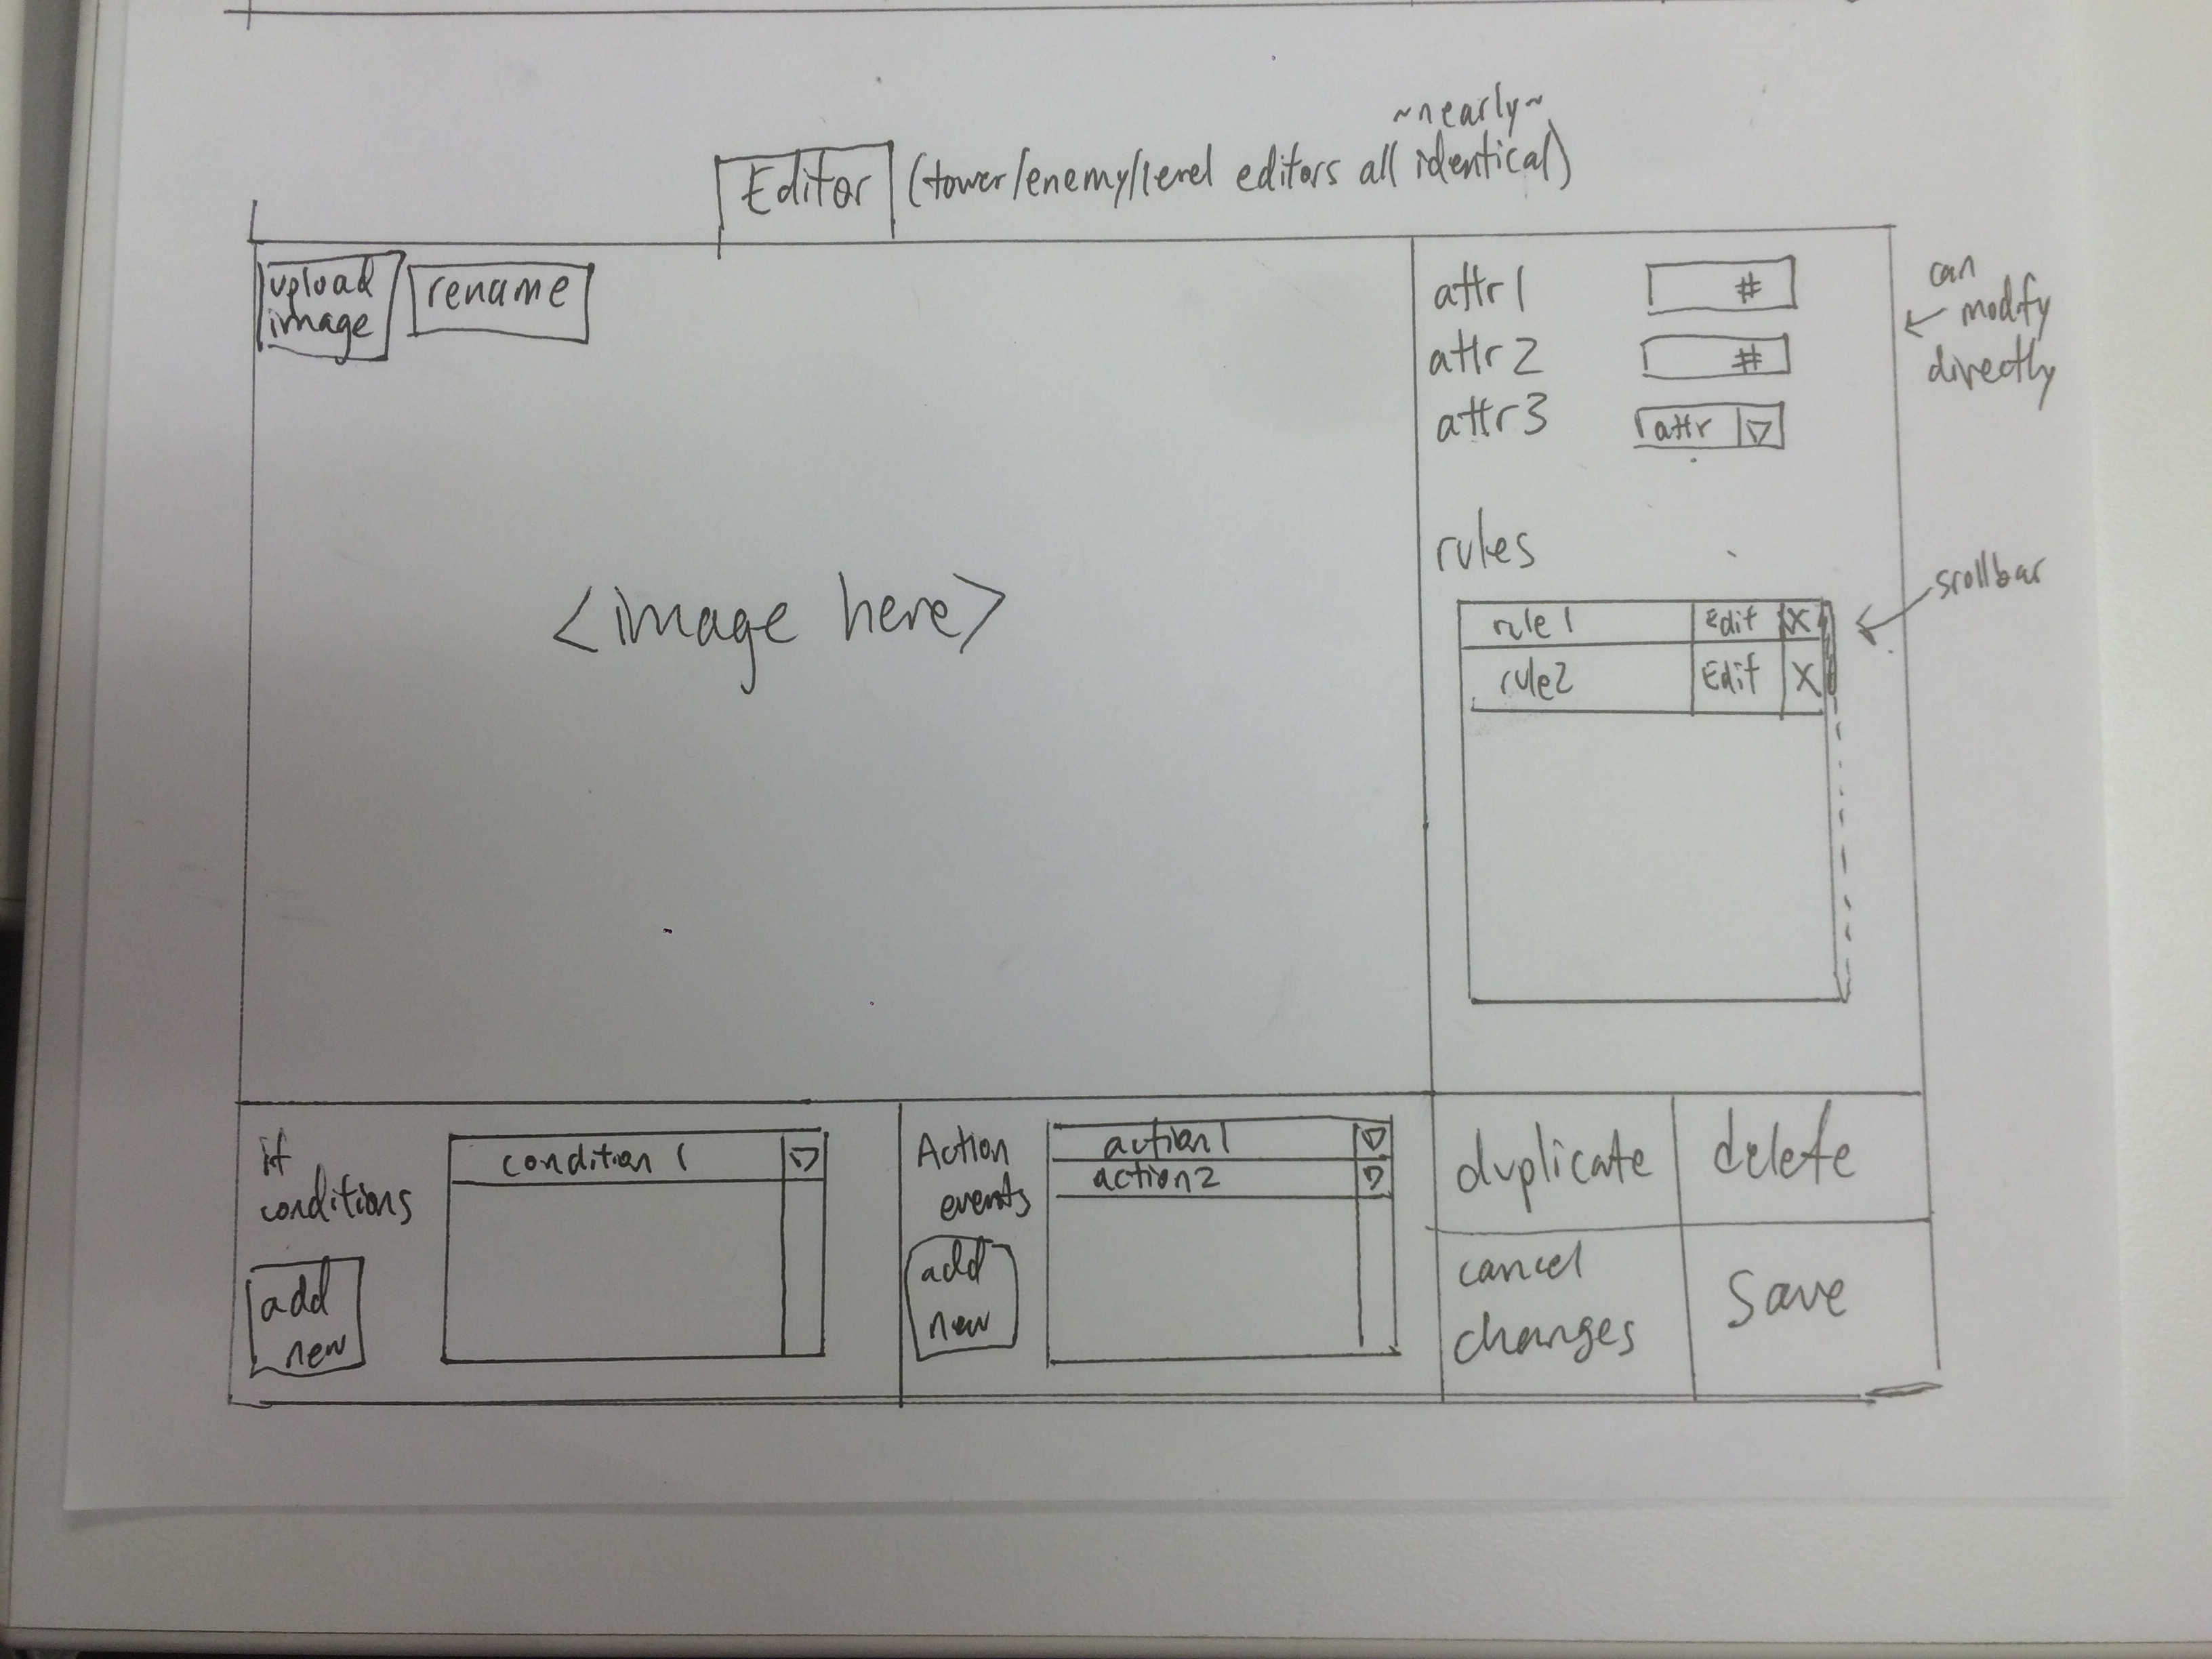 ~nearly~
Editor (tower/enemy/level editors all identical)
upload
image
rename
<image here>
attr1 #
attr2 #
attr3 attr
can
modify
directly
rules
srollbar
rule1 Edit X
rule2 Edit X
if
conditions
add
new
condition 1
Action
events
add
new
action1
action2
duplicate
delete
cancel
changes
Save